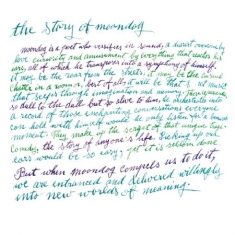 the story of moondog
moondog is a poet who versifies in sound, a diarist overcome by
love curiosity and amusement by everything that enters his
ear, all of which he transposes into a symphony of himself.
it may be the roar from the streets, it may be the casual
chatter in a room, best of all, it will be that secret music
that seeps through imagination and memory, timeworn,
so dull to the dull but so alive to him, he undertakes into
a record of those enchanting conversations everyone
can hold with himself would he only listen for a human
moment. They make up the script of that unique Tragi-
Comedy, the story of anyone's life. Picking up our
ears would be so easy; yet it is seldom done.
But when moondog compels us to do it,
we are entranced and delivered willingly
into new worlds of meaning.